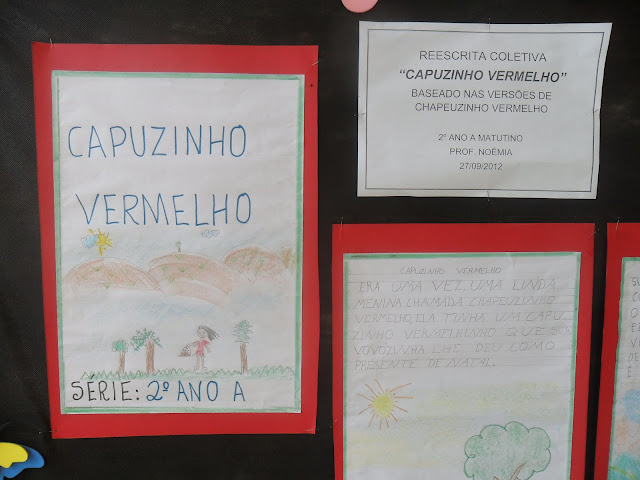 CAPUZINHO
VERMELHO
SÉRIE: 2º ANO A
REESCRITA COLETIVA
“CAPUZINHO VERMELHO”
BASEADO NAS VERSÕES DE
CHAPEUZINHO VERMELHO
2º ANO A MATUTINO
PROF. NOÊMIA
27/09/2012
CAPUZINHO VERMELHO
ERA UMA VEZ, UMA LINDA
MENINA CHAMADA CHAPEUZINHO
VERMELHO, ELA TINHA UM CAPU
ZINHO VERMELHINHO QUE SUA
VOVOZINHA LHE DEU COMO
PRESENTE DE NATAL.